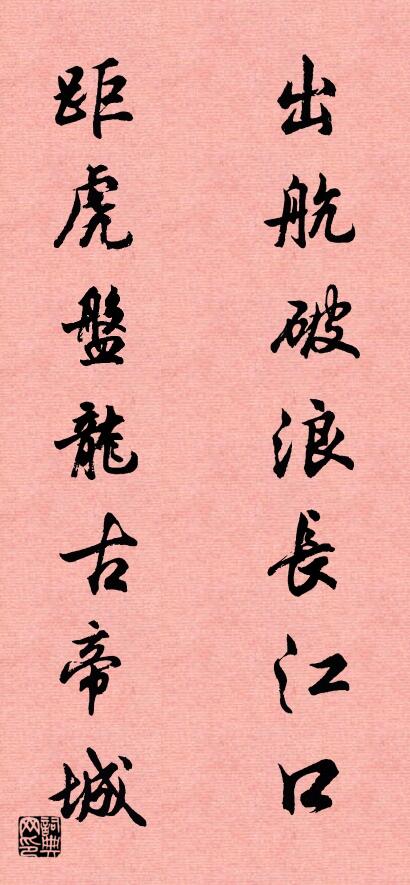 出航破浪長江口
距虎盤龍古帝城
詞典網印